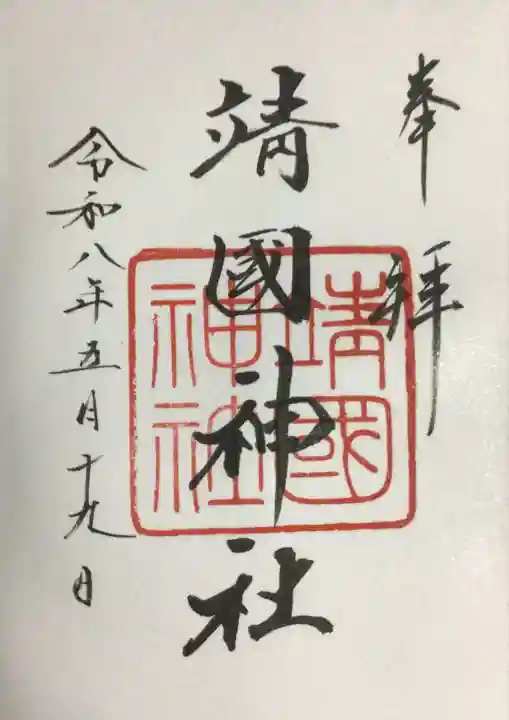 奉拜
靖國神社
靖國
神社
令和八年五月十九日